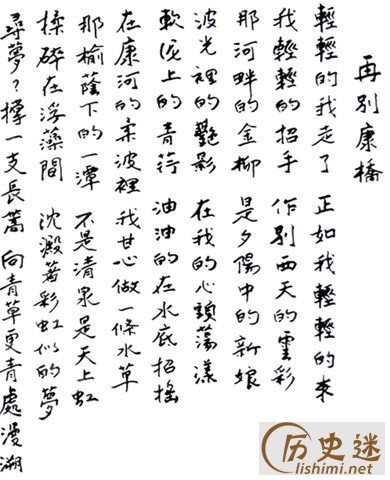 再別康橋
輕輕的我走了 正如我輕輕的來
我輕輕的招手 作別西天的雲彩
那河畔的金柳 是夕陽中的新娘
波光裡的艷影 在我的心頭蕩漾
軟泥上的青荇 油油的在水底招搖
在康河的柔波裡 我甘心做一條水草
那榆蔭下的一潭 不是清泉是天上虹
揉碎在浮藻間 沈澱著彩虹似的夢
尋夢?撐一支長篙 向青草更青處漫溯
历史迷
lishimi.net